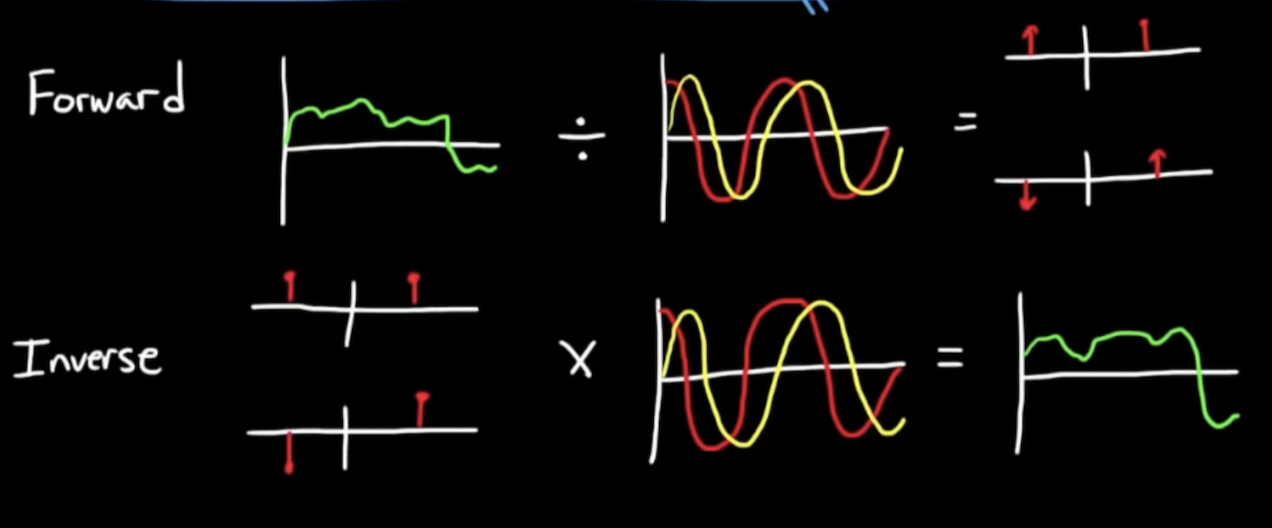 Forward ÷ =
Inverse X =